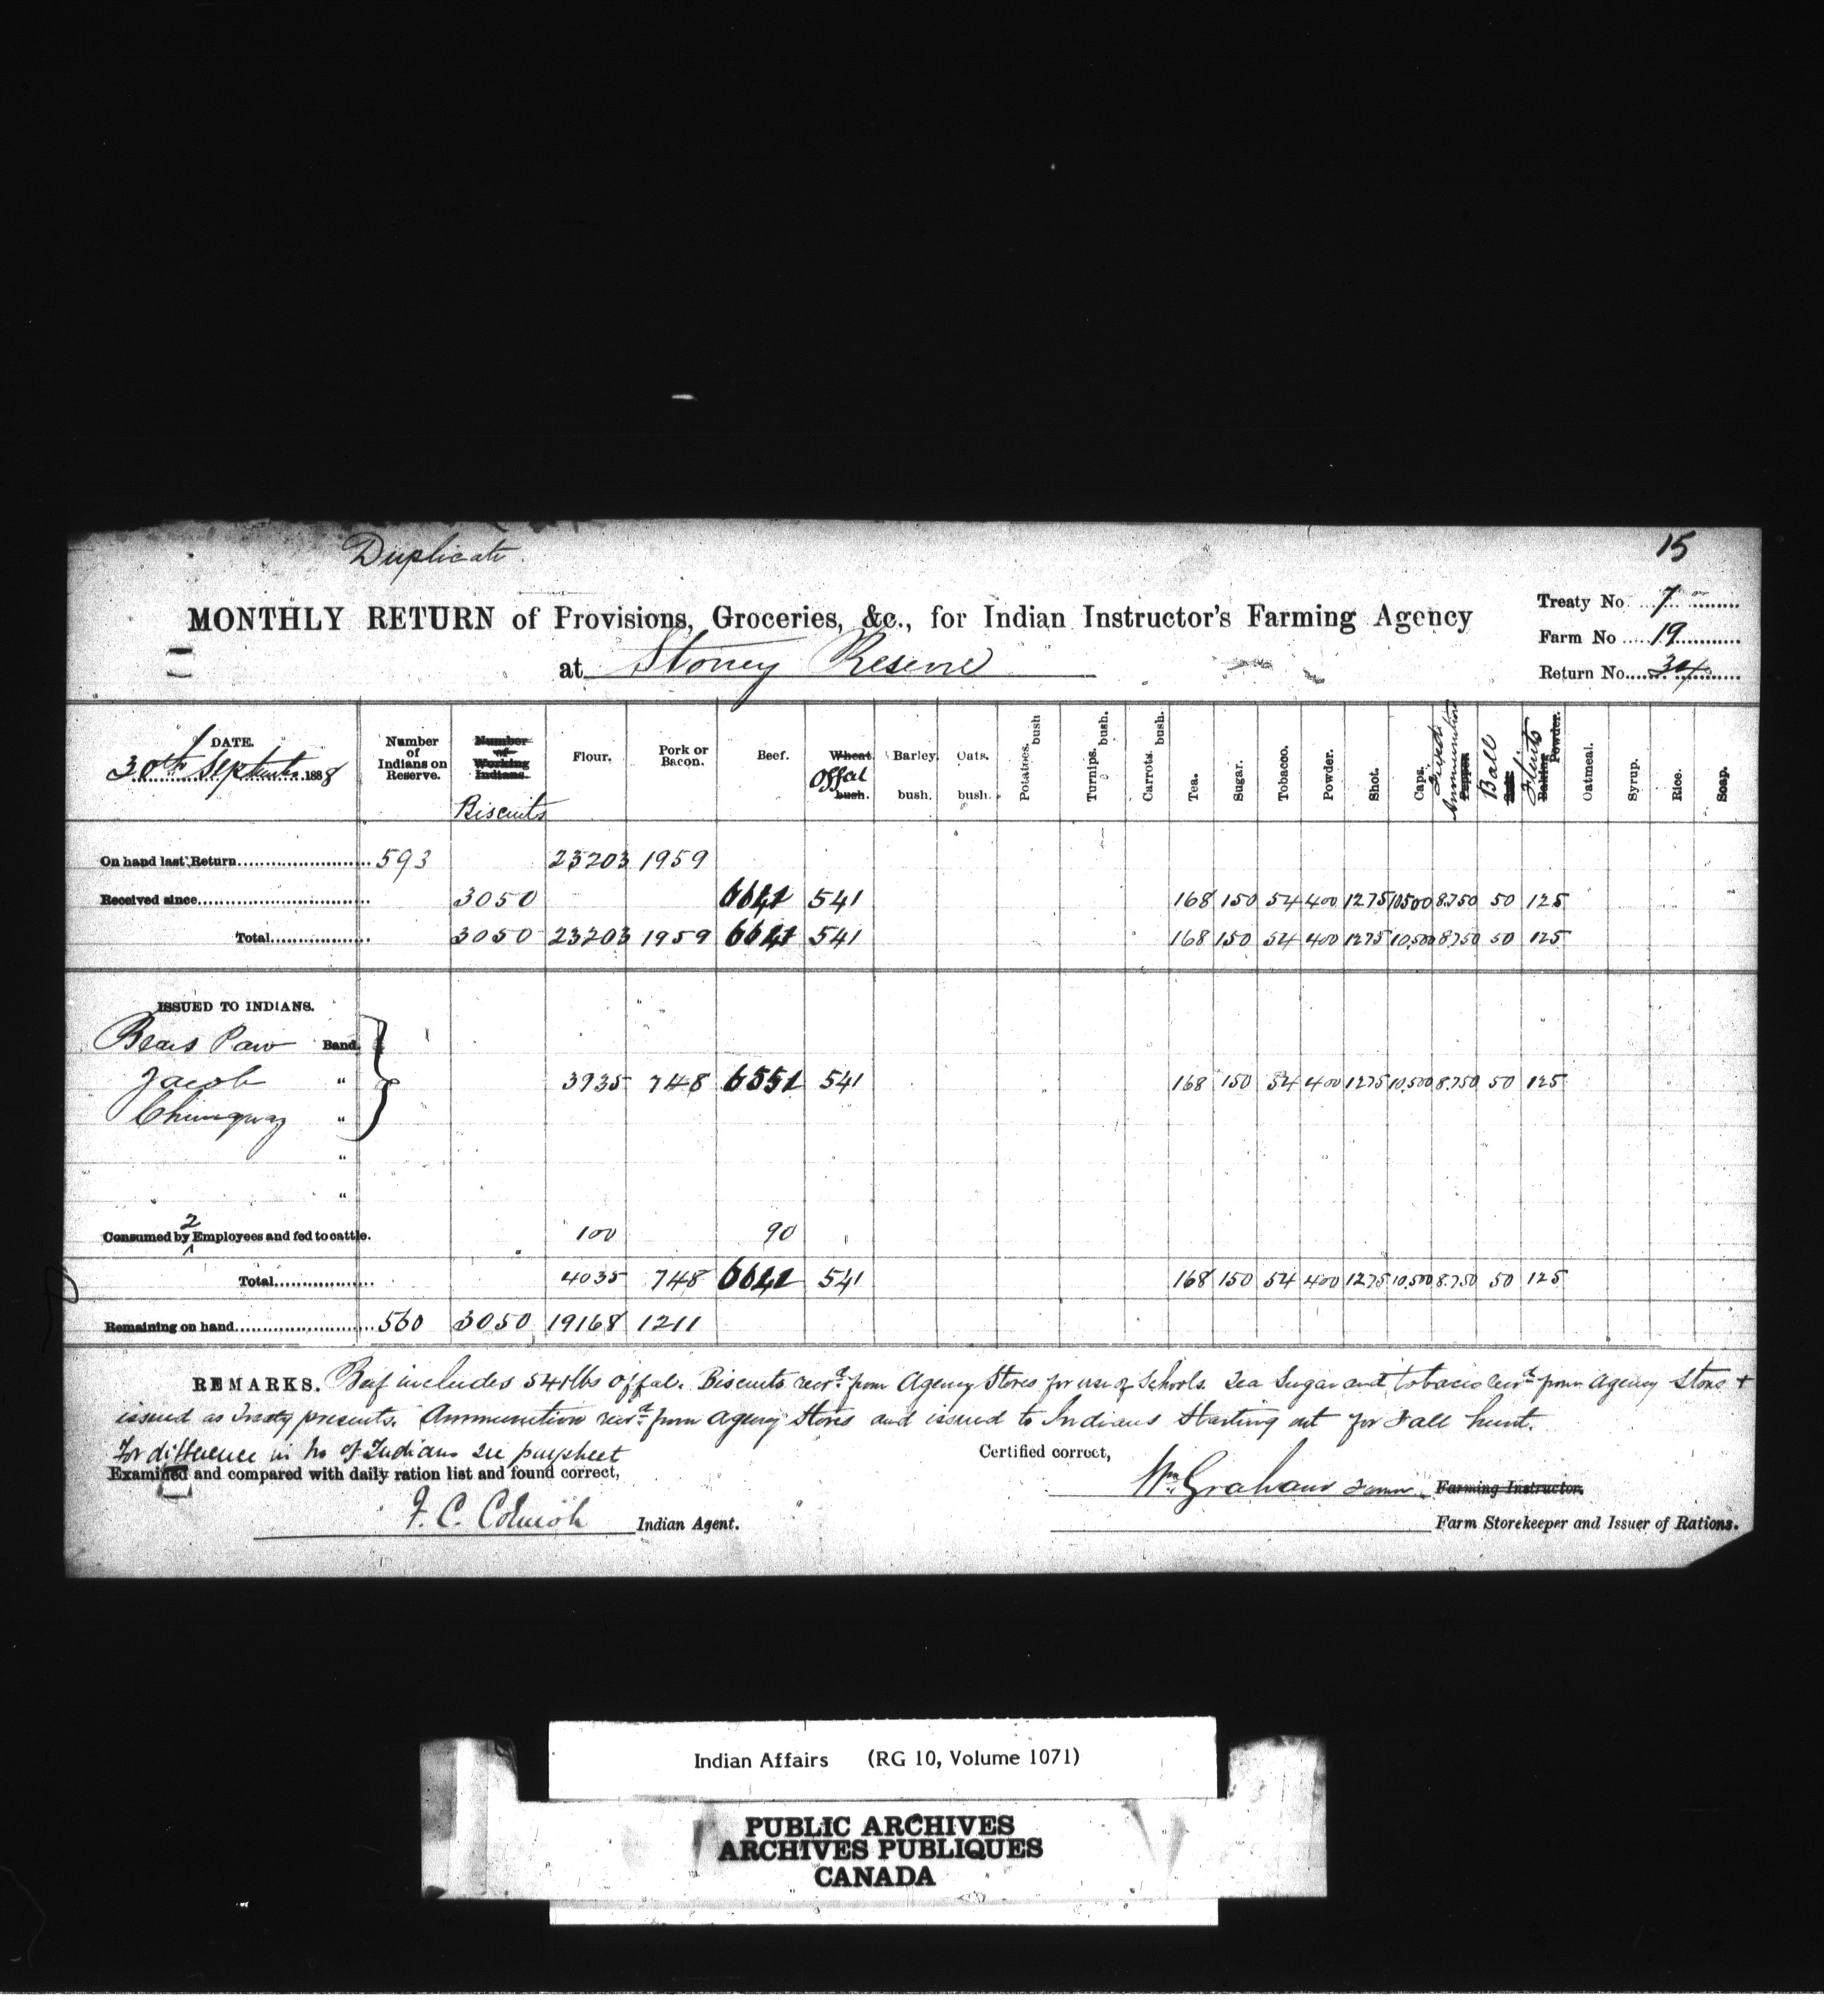 Duplicate
15
MONTHLY RETURN of Provisions, Groceries, &c., for Indian Instructor's Farming Agency
at Stoney Reserve
Treaty No. 7
Farm No. 19
Return No. 34
DATE. 30th September 1888
Number of Indians on Reserve.
Number of Working Indians. Biscuits
Flour.
Pork or Bacon.
Beef.
Wheat Offal bush.
Barley bush.
Oats. bush.
Potatoes. bush
Turnips. bush.
Carrots. bush.
Tea.
Sugar.
Tobacco.
Powder.
Shot.
Caps.
Fixed Ammunition Pepper
Ball Salt
Flints Baking Powder.
Oatmeal.
Syrup.
Rice.
Soap.
On hand last Return 593 23203 1959
Received since 3050 6641 541 168 150 54 400 1275 10500 8.750 50 125
Total 3050 23203 1959 6641 541 168 150 54 400 1275 10,500 8.750 50 125
ISSUED TO INDIANS.
Bears Paw Band
Jacob " 3935 748 6551 541 168 150 54 400 1275 10,500 8.750 50 125
Chiniquay "
"
"
Consumed by 2 Employees and fed to cattle. 100 90
Total 4035 748 6641 541 168 150 54 400 1275 10,500 8.750 50 125
Remaining on hand 560 3050 19168 1211
REMARKS. Beef includes 541 lbs offal. Biscuits recvd from Agency Stores for use of Schools. Tea Sugar and tobacco recvd from Agency Stores +
issued as Treaty presents. Ammunition recvd from Agency Stores and issued to Indians Starting out for Fall hunt.
For difference in No of Indians see paysheet
Examined and compared with daily ration list and found correct,
Certified correct,
Wm Graham Farmer Farming Instructor.
F. C. Cornish Indian Agent.
Farm Storekeeper and Issuer of Rations.
Indian Affairs (RG 10, Volume 1071)
PUBLIC ARCHIVES
ARCHIVES PUBLIQUES
CANADA